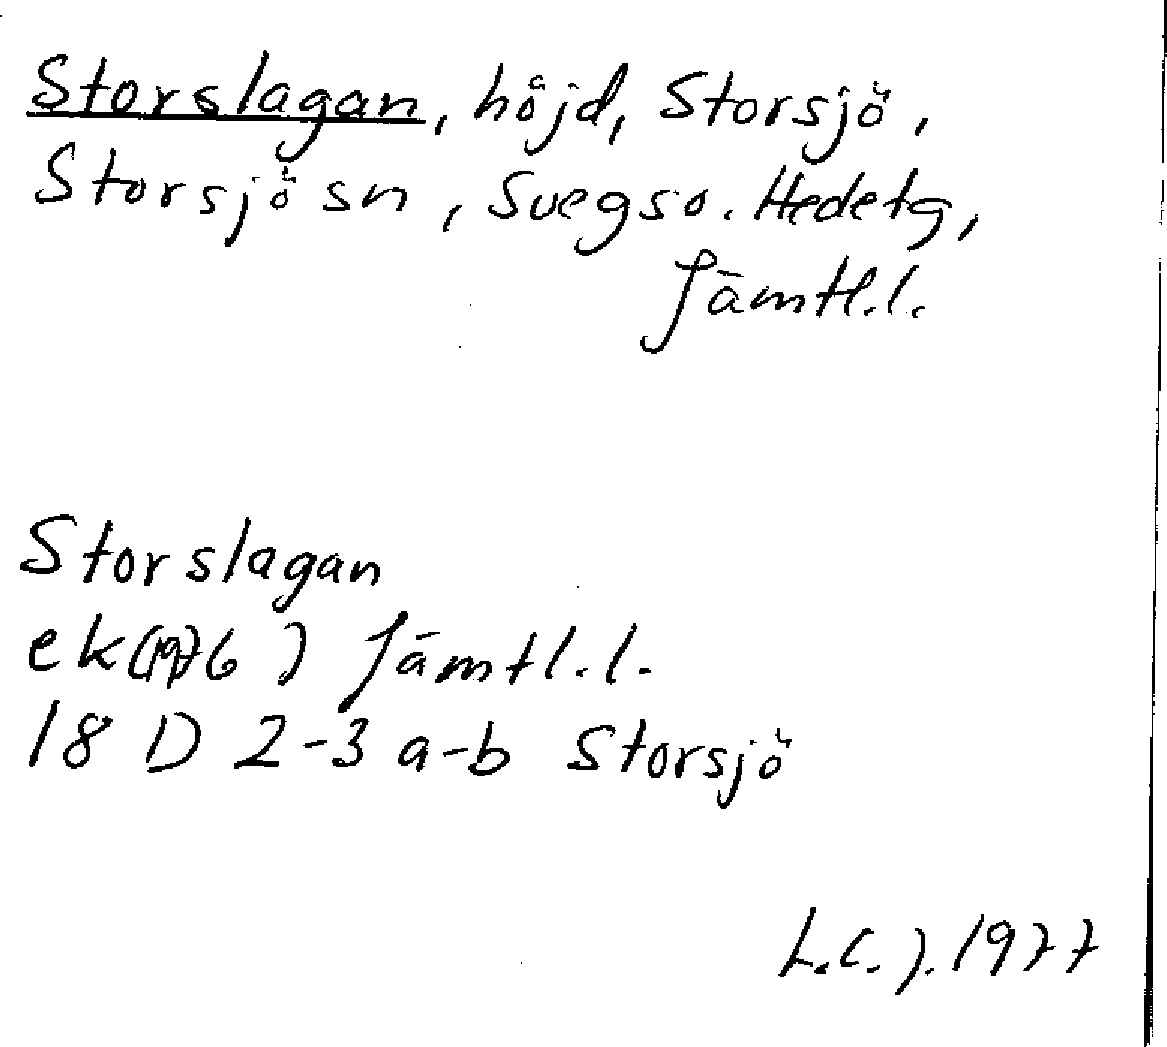 Storslagan, höjd, Storsjö,
Storsjö sn, Svegs o. Hede tg,
Jämtl.l.
Storslagan
ek (1976) Jämtl.l.
18 D 2-3 a-b Storsjö
L.C.J. 1977